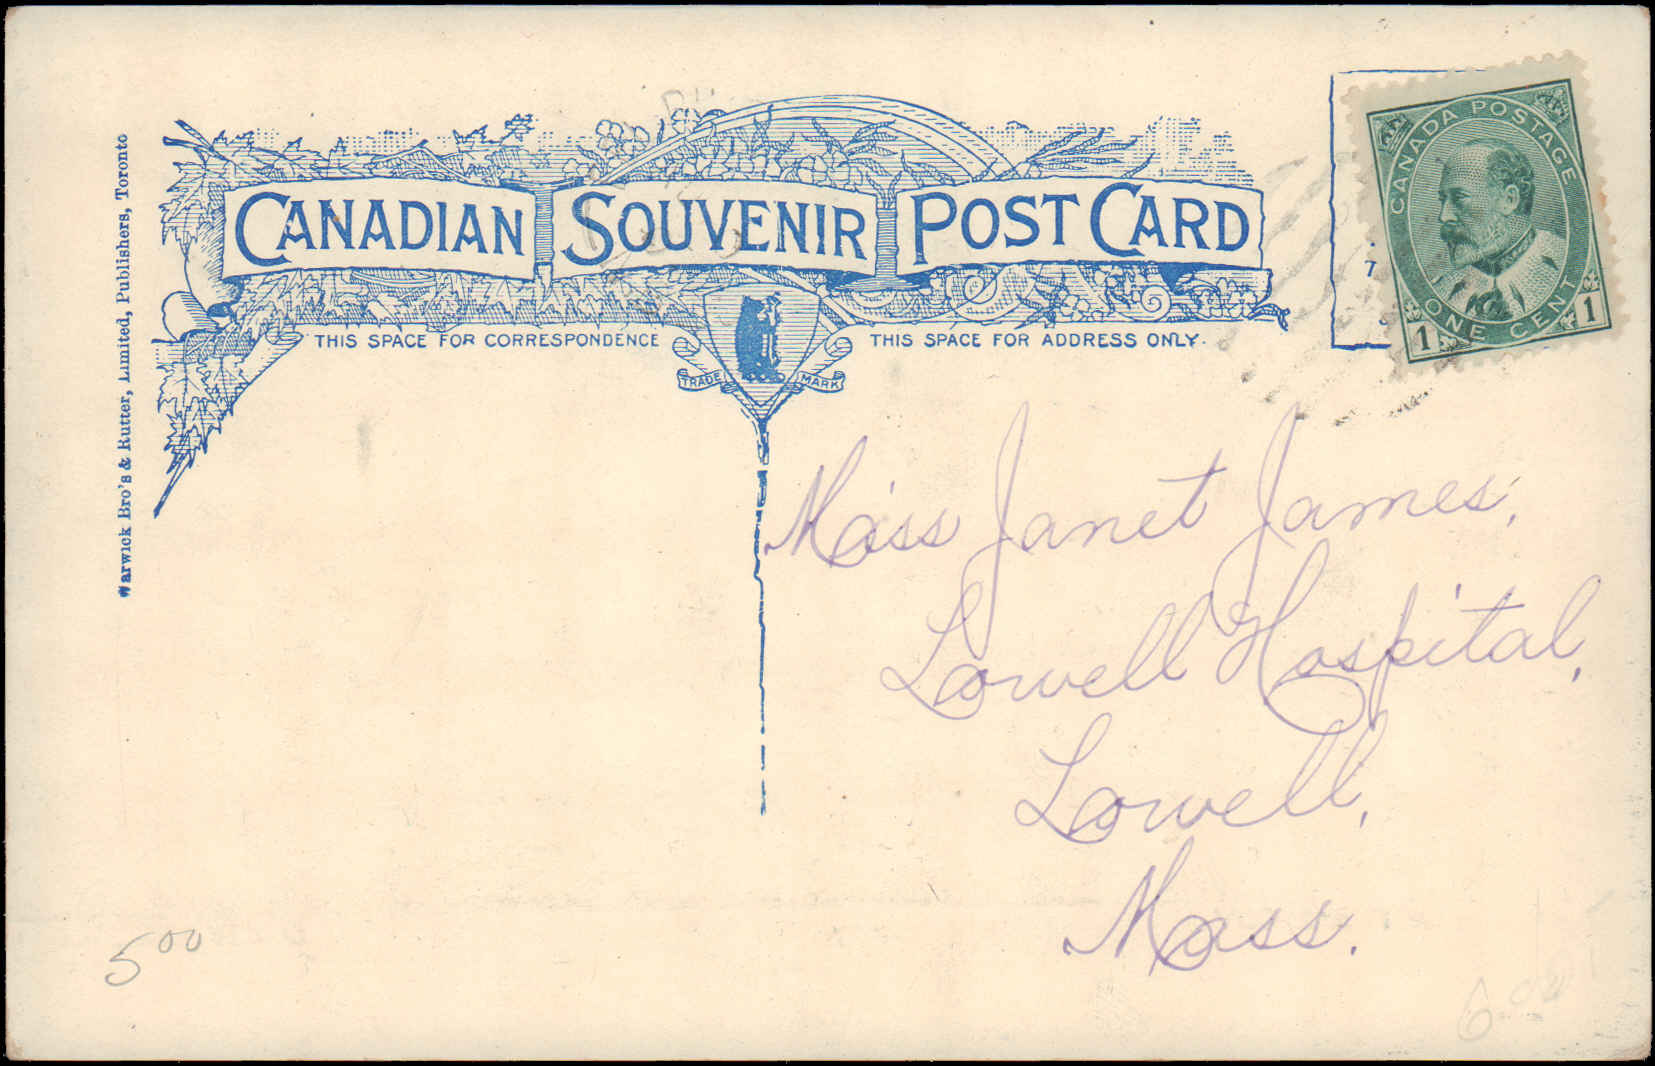 CANADIAN SOUVENIR POST CARD
THIS SPACE FOR CORRESPONDENCE
THIS SPACE FOR ADDRESS ONLY.
TRADE MARK
Warwick Bro's & Rutter, Limited, Publishers, Toronto
CANADA POSTAGE
ONE CENT
1 1
7
Miss Janet James,
Lowell Hospital,
Lowell,
Mass.
5 00
6.00